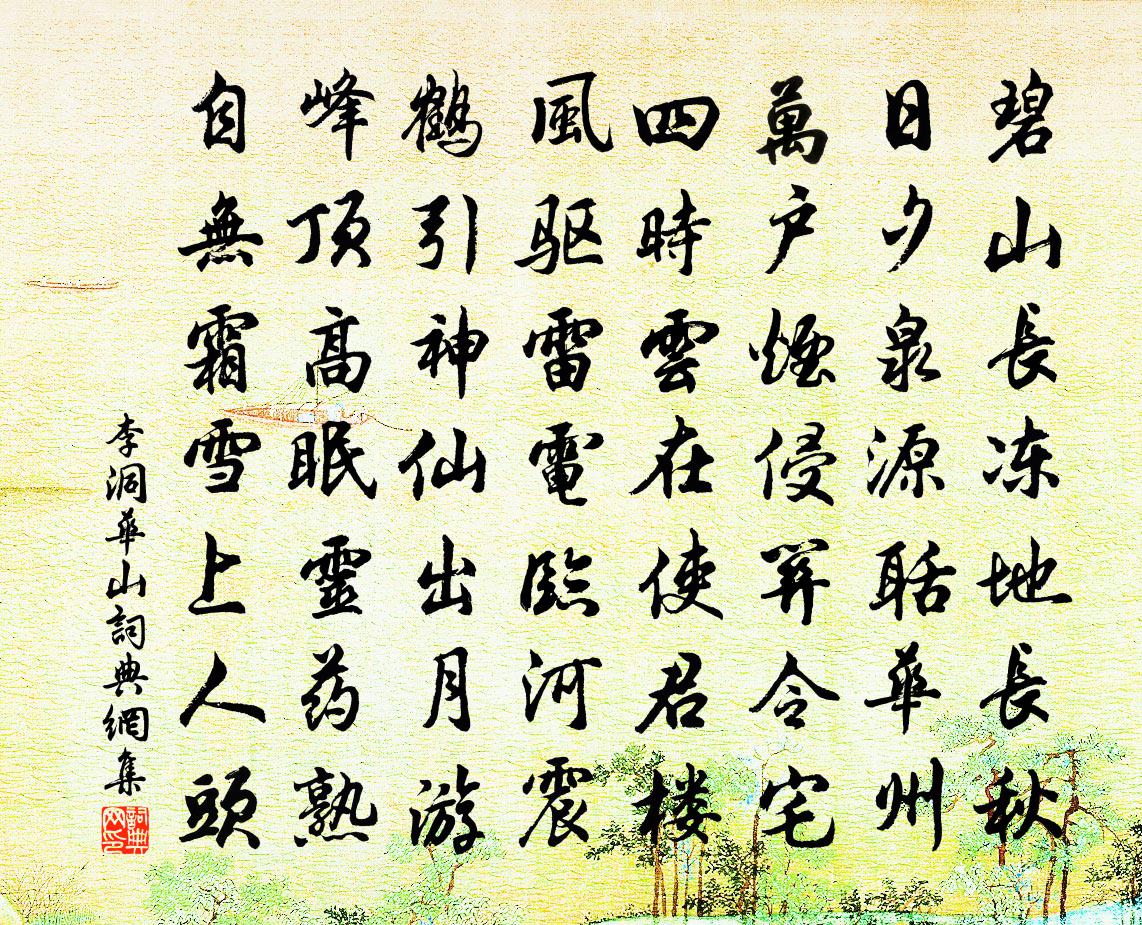 碧山長冻地長秋
日夕泉源聒華州
萬户煙侵関令宅
四時雲在使君楼
風驱雷電臨河震
鶴引神仙出月游
峰顶高眠靈药熟
自無霜雪上人頭
李洞華山詞典網集
詞典网印